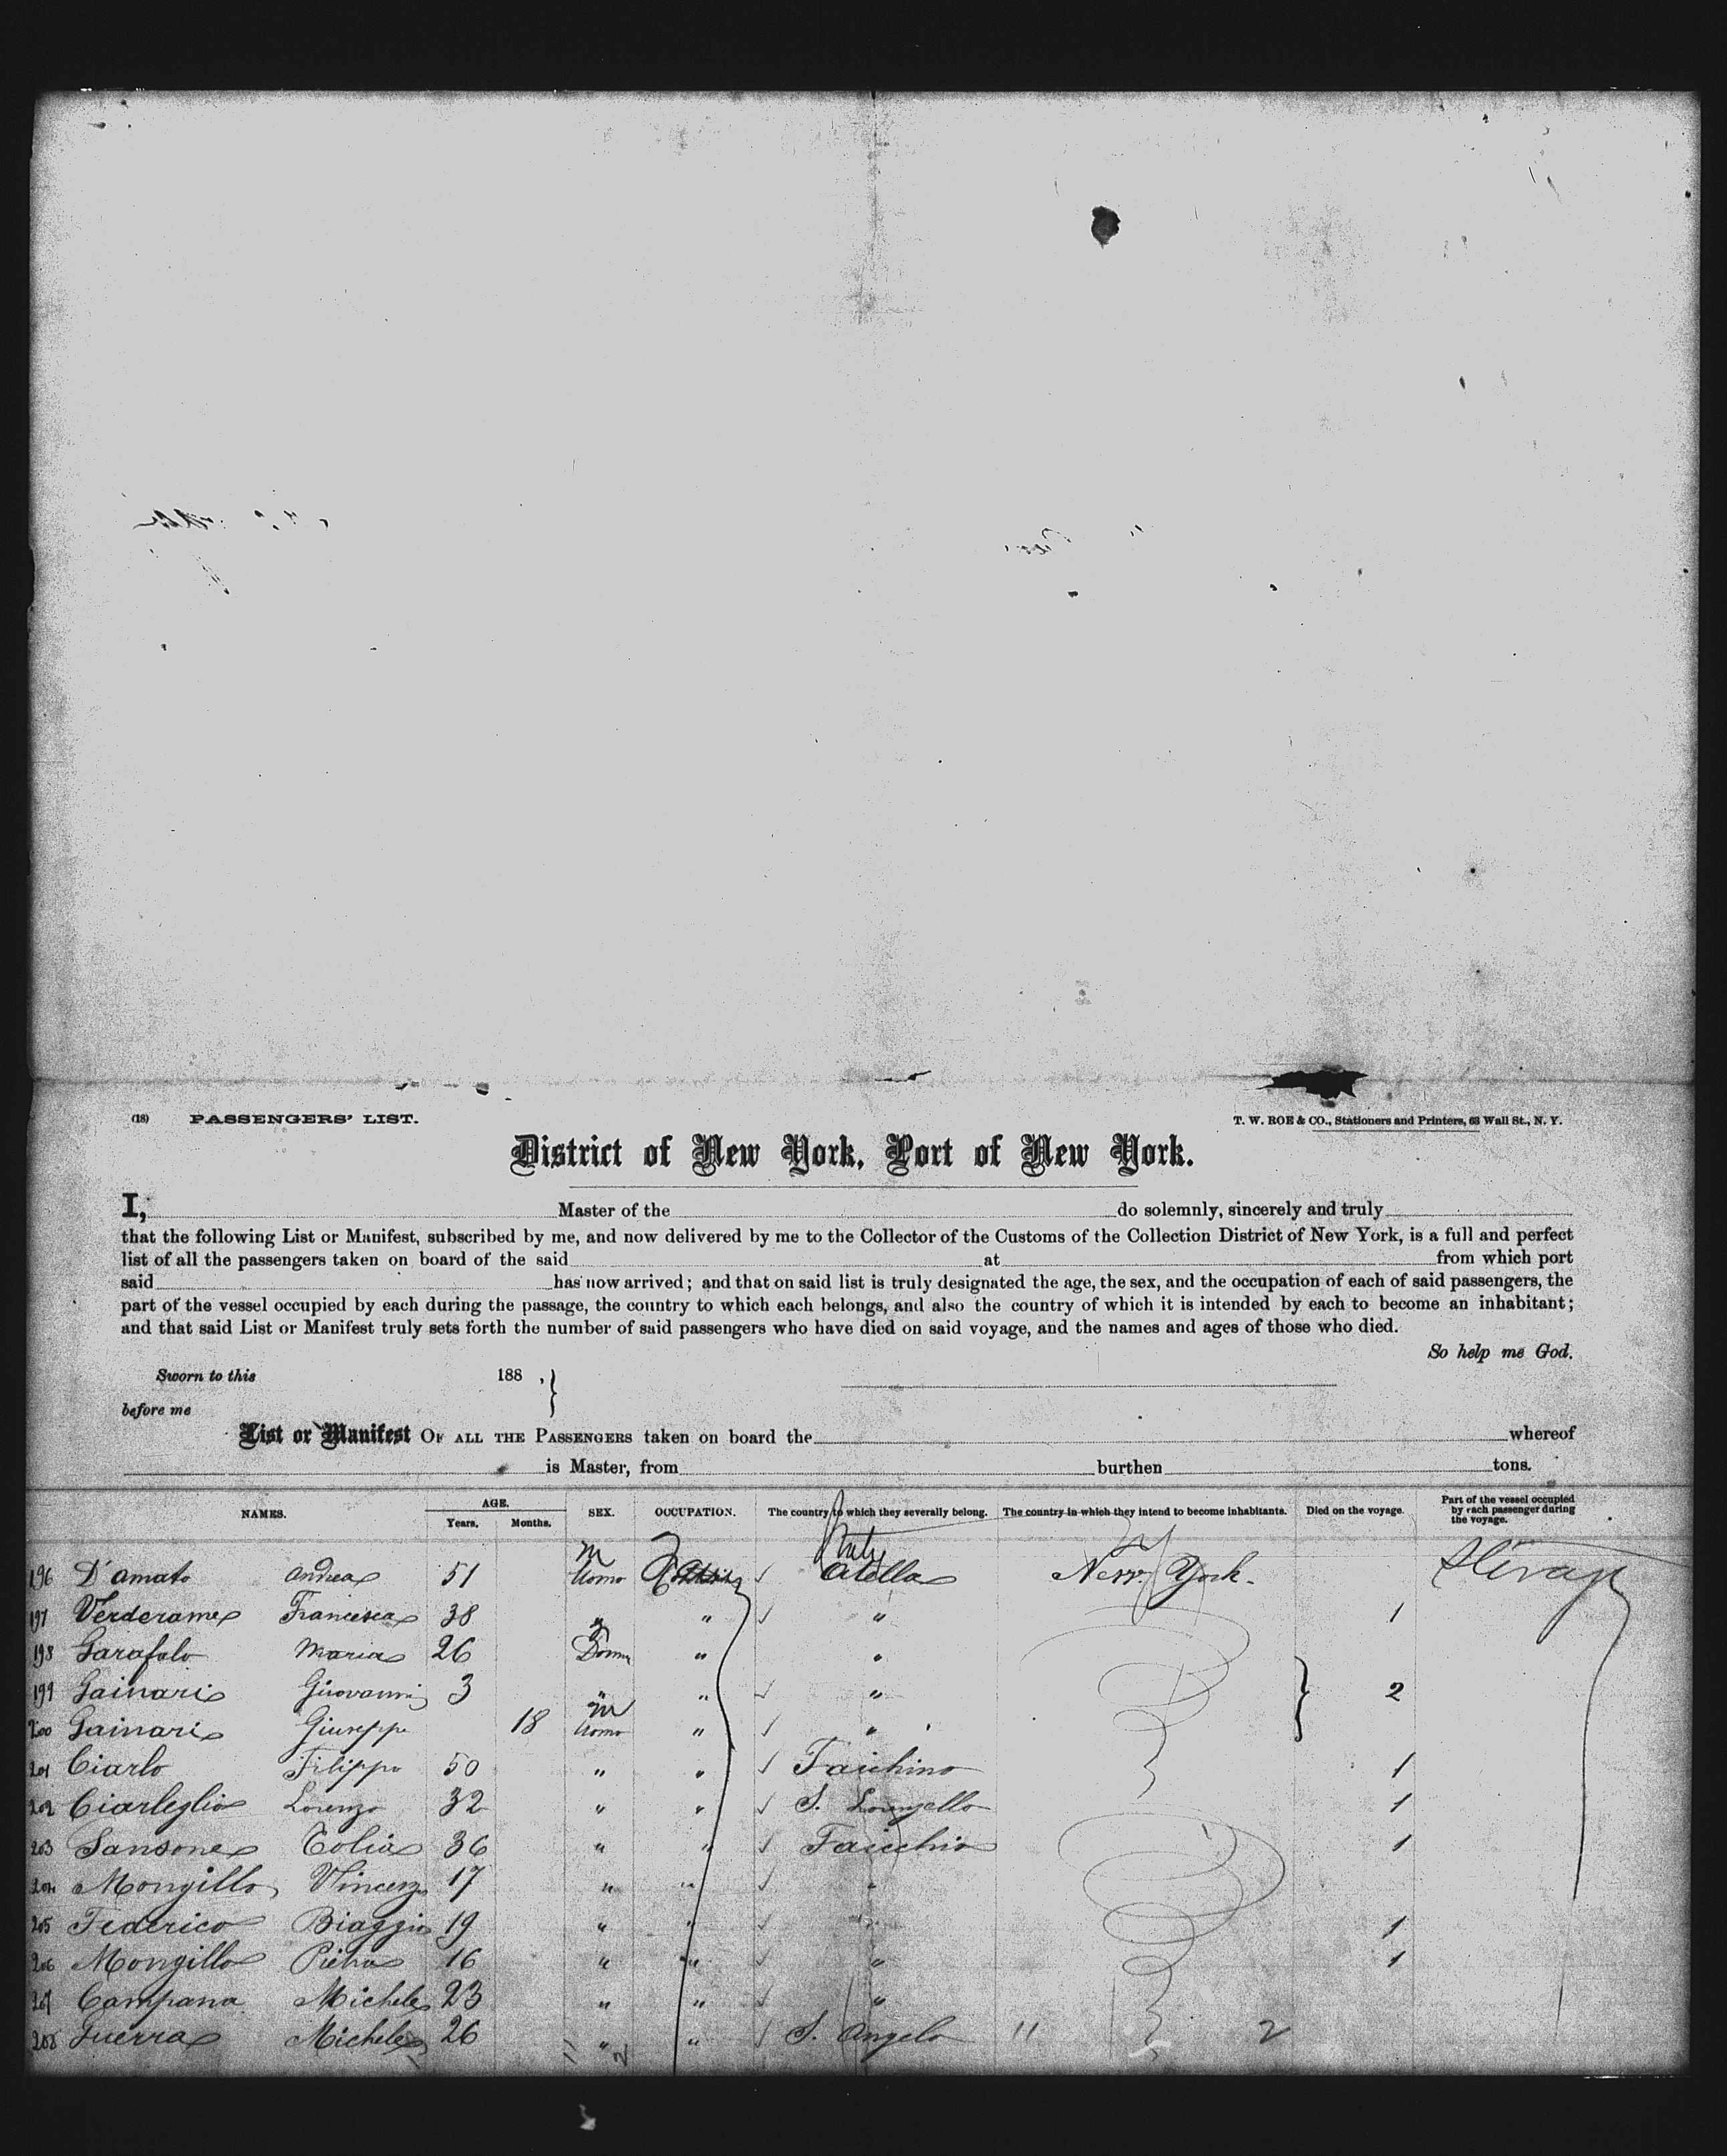 (18) PASSENGERS' LIST.
T. W. ROE & CO., Stationers and Printers, 63 Wall St., N. Y.
District of New York, Port of New York.
I, Master of the do solemnly, sincerely and truly
that the following List or Manifest, subscribed by me, and now delivered by me to the Collector of the Customs of the Collection District of New York, is a full and perfect
list of all the passengers taken on board of the said at from which port
said has now arrived; and that on said list is truly designated the age, the sex, and the occupation of each of said passengers, the
part of the vessel occupied by each during the passage, the country to which each belongs, and also the country of which it is intended by each to become an inhabitant;
and that said List or Manifest truly sets forth the number of said passengers who have died on said voyage, and the names and ages of those who died.
So help me God.
Sworn to this 188 ,
before me
List or Manifest OF ALL THE PASSENGERS taken on board the whereof
is Master, from burthen tons.
NAMES. AGE. Years. Months. SEX. OCCUPATION. The country to which they severally belong. The country in which they intend to become inhabitants. Died on the voyage. Part of the vessel occupied by each passenger during the voyage.
196 D'amato Andrea 51 M Uomo Atella New York.
197 Verderame Francesca 38 " " 1
198 Garafalo Maria 26 Donna " "
199 Gainari Giovanni 3 " " " 2
200 Gainari Giuseppe 18 M Uomo " "
201 Ciarlo Filippo 50 " " Faichino 1
202 Ciarleglio Lorenzo 32 " " S. 1
203 Sansone Eolia 36 " " Faicchio 1
204 Mongillo Vincenzo 17 " " "
205 Federico Biaggio 19 " " " 1
206 Mongillo Pietro 16 " " " 1
207 Campana Michele 23 " " "
208 Guerra Michele 26 " " S. Angelo 11 2